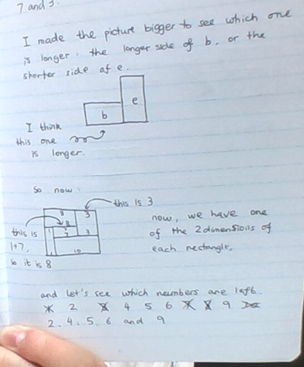 7 and 3.
I made the picture bigger to see which one
is longer. the longer side of b, or the
shorter side of e.
e
b
I think
this one
is longer.
So now:
this is 3
this is
1+7,
so it is 8
now, we have one
of the 2 dimensions of
each rectangle,
and let's see which numbers are left.
2 4 5 6 9
2, 4, 5, 6 and 9